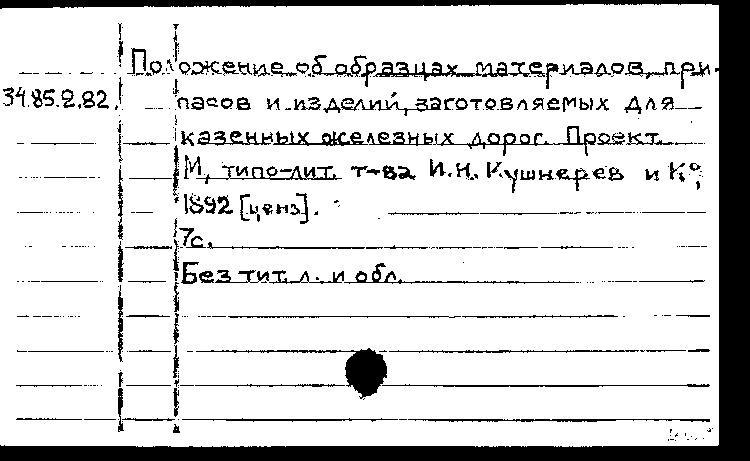 Положение об образцах материалов, при-
34.85.2.82. пасов и изделий, заготовляемых для
казенных железных дорог. Проект.
М, типо-лит. т-ва И.Н. Кушнерев и К°,
1892 [ценз].
7с.
Без тит. л. и обл.